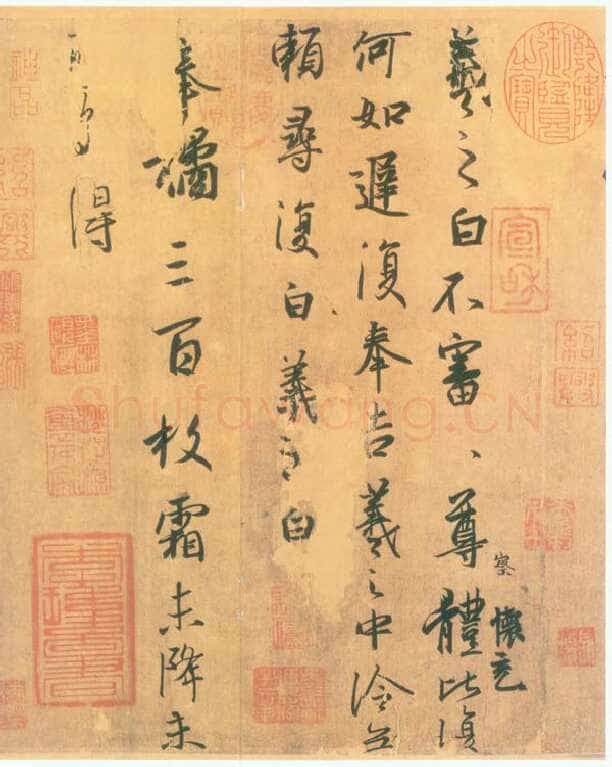 羲之白不審、尊體比復
察
懷充
何如遲復奉告羲之中冷無
賴尋復白羲之白
奉橘三百枚霜未降未
可多得
宣和
紹興
Shufawang.CN